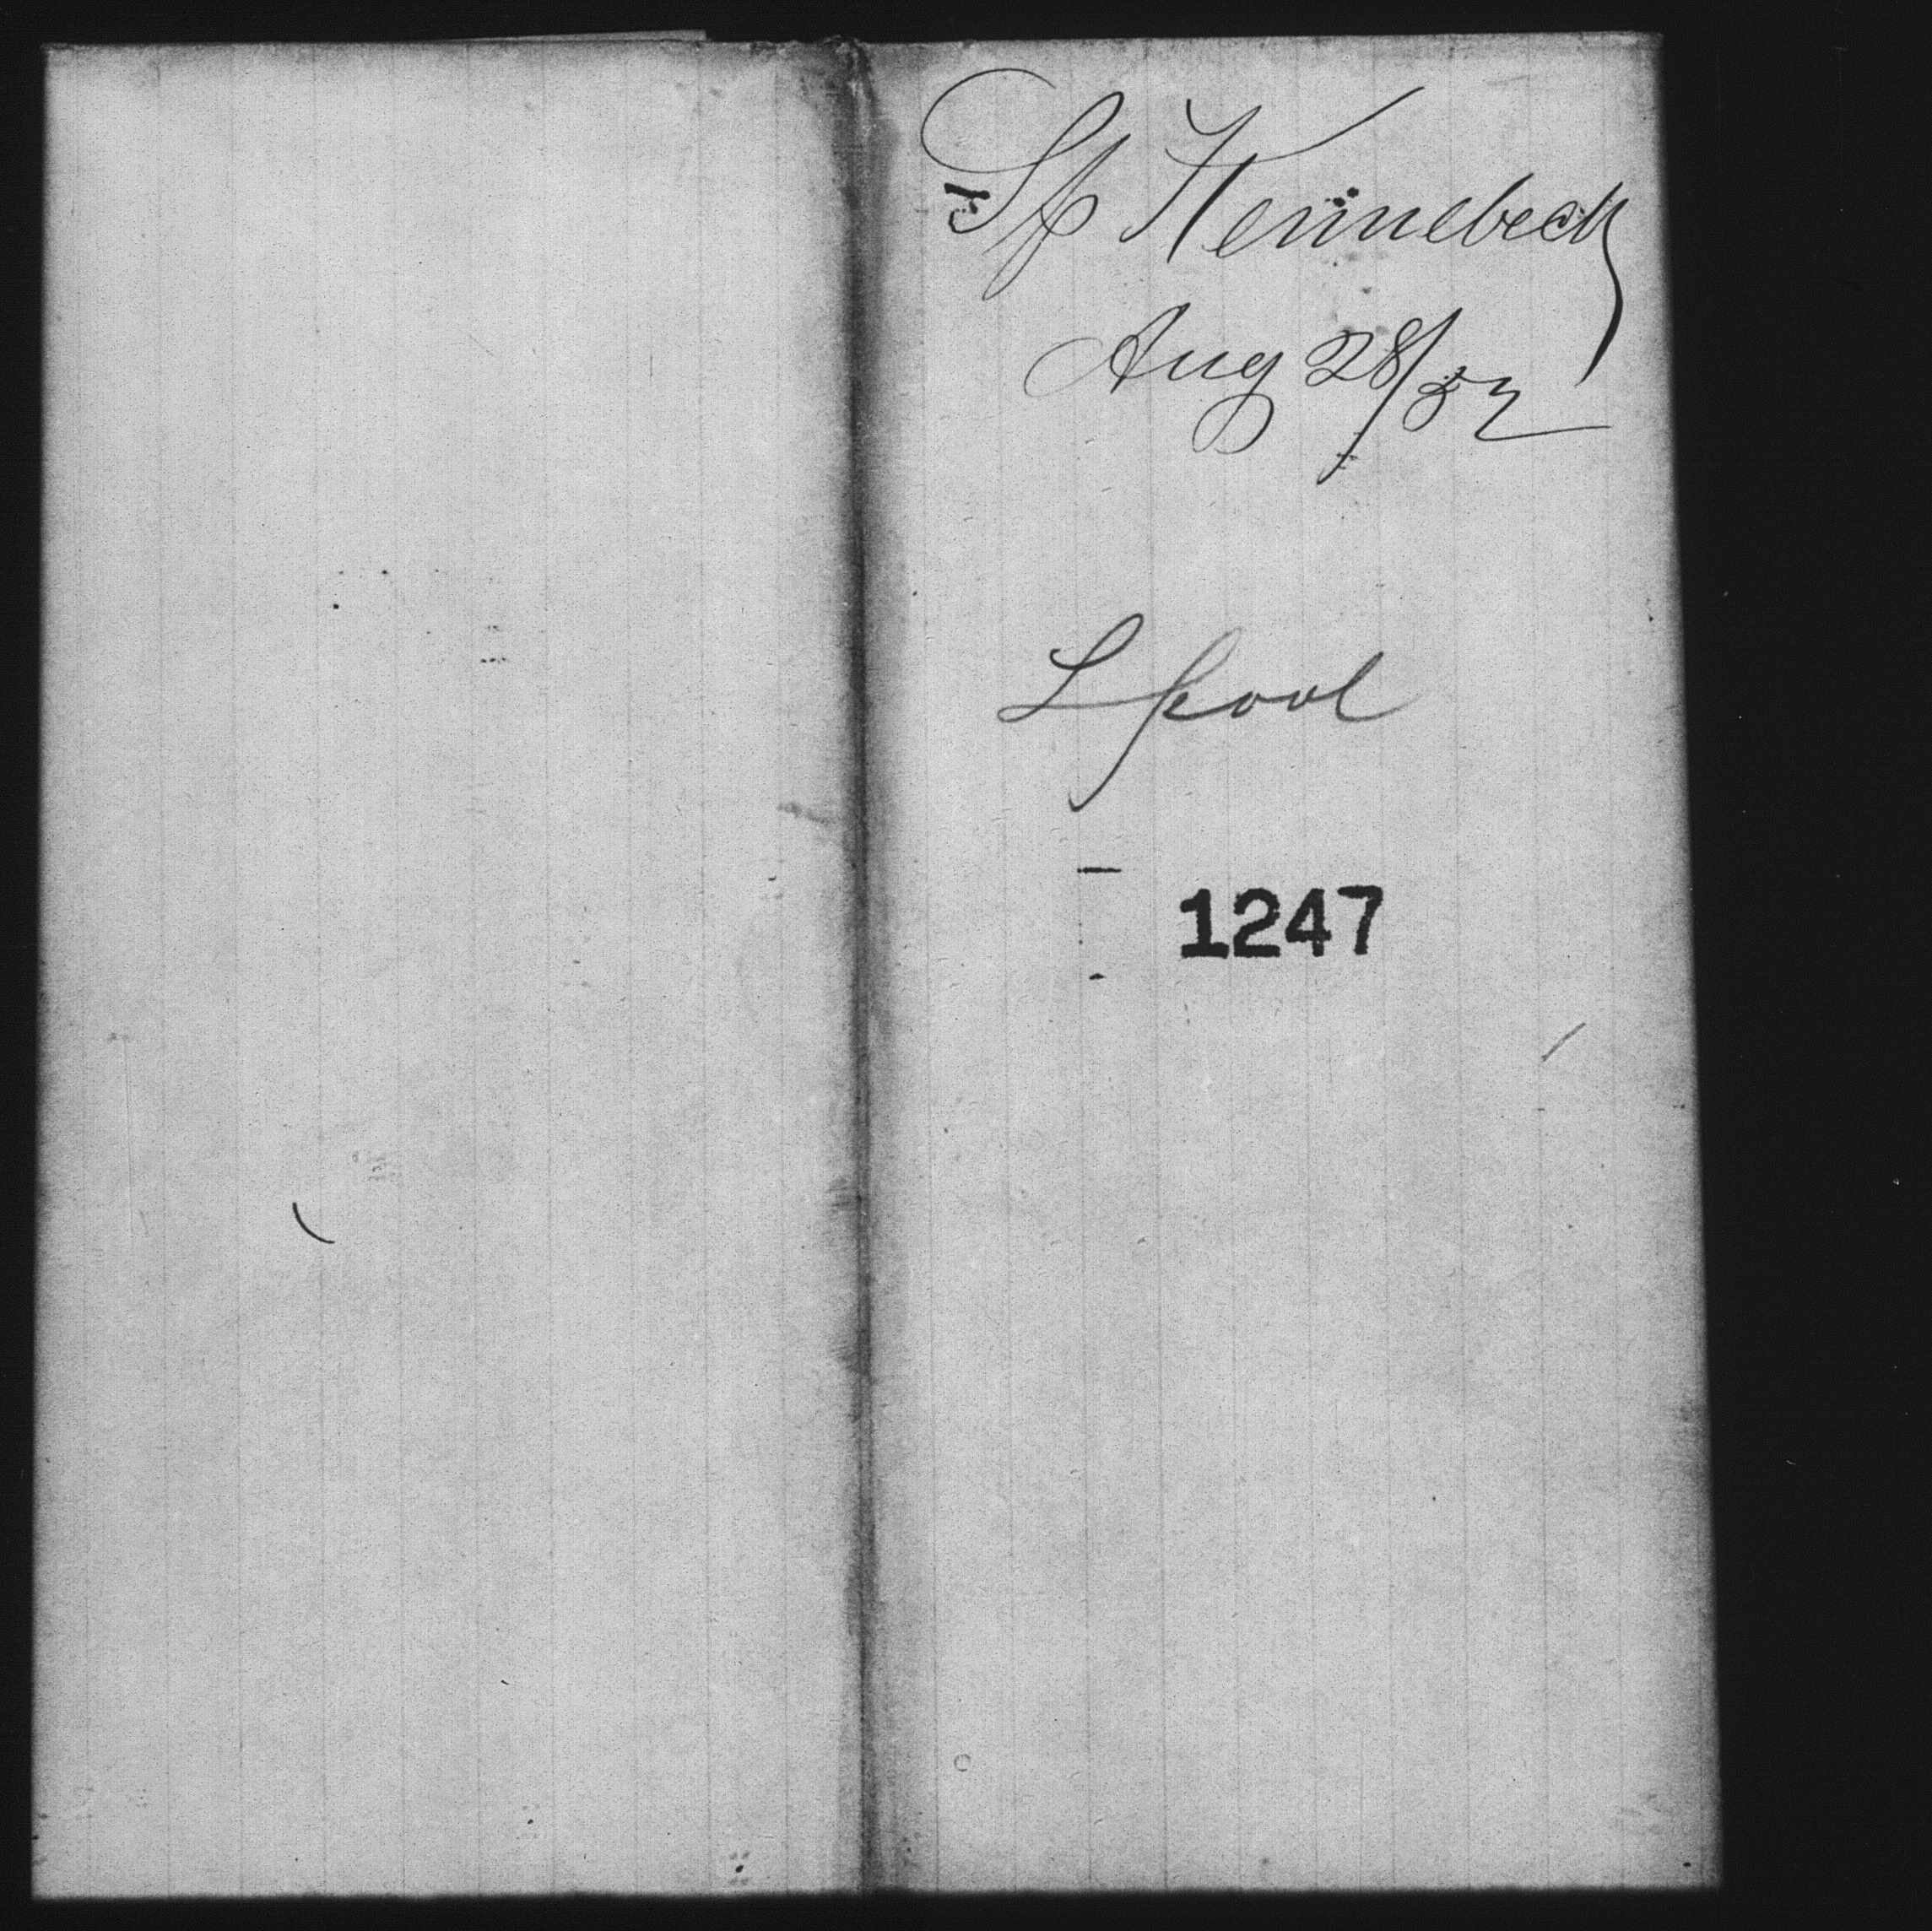 Sp Kennebeck
Aug 28/52
Lpool
1247